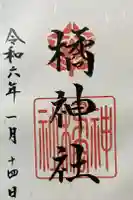 橘神社
令和六年一月十四日